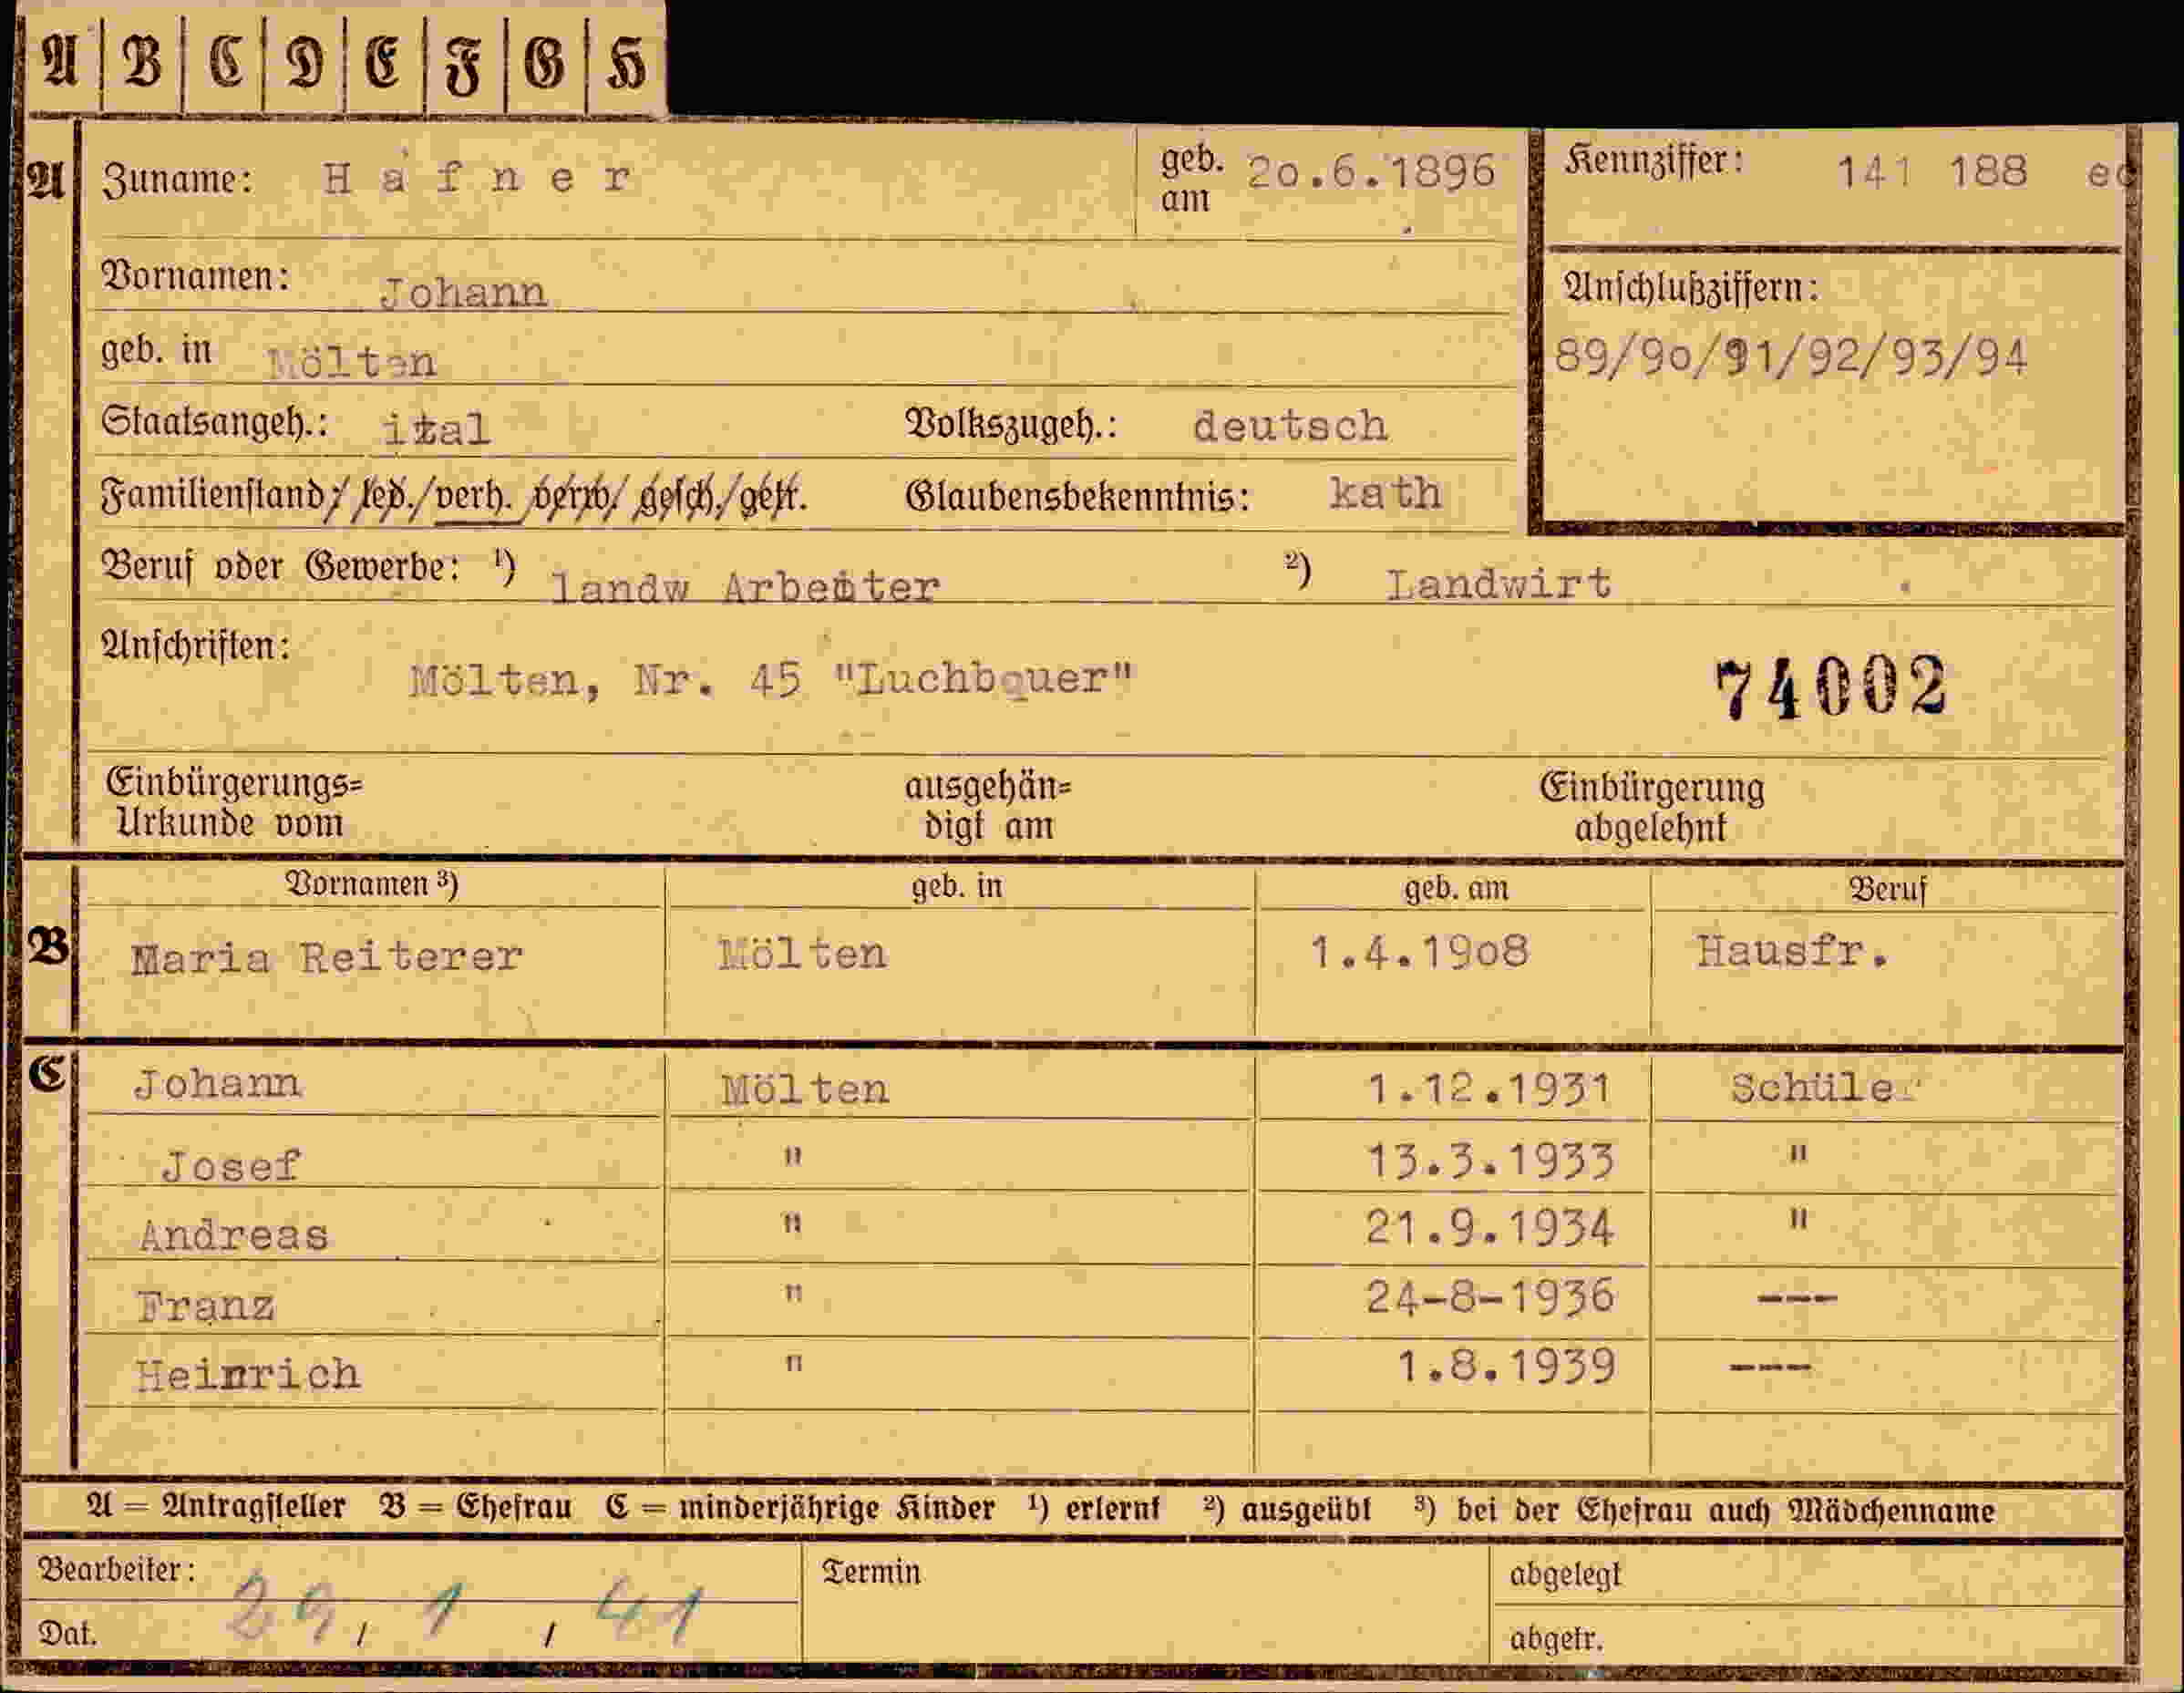 A B C D E F G H
A Zuname: Hafner geb. am 20.6.1896 Kennziffer: 141 188
Vornamen: Johann Anschlußziffern:
geb. in Mölten 89/90/91/92/93/94
Staatsangeh.: ital Volkszugeh.: deutsch
Familienstand: led./verh. verw/ gesch./getr. Glaubensbekenntnis: kath
Beruf oder Gewerbe: ¹) landw Arbeiter ²) Landwirt
Anschriften: Mölten, Nr. 45 "Luchbauer" 74002
Einbürgerungs= ausgehän= Einbürgerung
Urkunde vom digt am abgelehnt
Vornamen ³) geb. in geb. am Beruf
B Maria Reiterer Mölten 1.4.1908 Hausfr.
C Johann Mölten 1.12.1931 Schüler
Josef " 13.3.1933 "
Andreas " 21.9.1934 "
Franz " 24-8-1936 ---
Heinrich " 1.8.1939 ---
A = Antragsteller B = Ehefrau C = minderjährige Kinder ¹) erlernt ²) ausgeübt ³) bei der Ehefrau auch Mädchenname
Bearbeiter: Termin abgelegt
Dat. 29, 1, 41 abgetr.